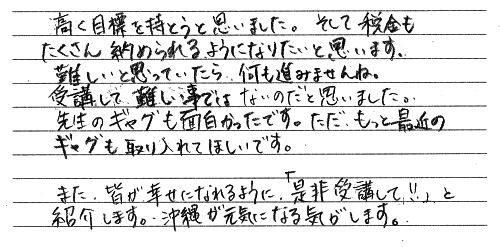 高く目標を持とうと思いました。そして税金も
たくさん納められるようになりたいと思います。
難しいと思っていたら、何も進みませんね。
受講して、難しい事ではないのだと思いました。
先生のギャグも面白かったです。ただ、もっと最近の
ギャグも取り入れてほしいです。
また、皆が幸せになれるように、「是非受講して!!」と
紹介します。沖縄が元気になる気がします。